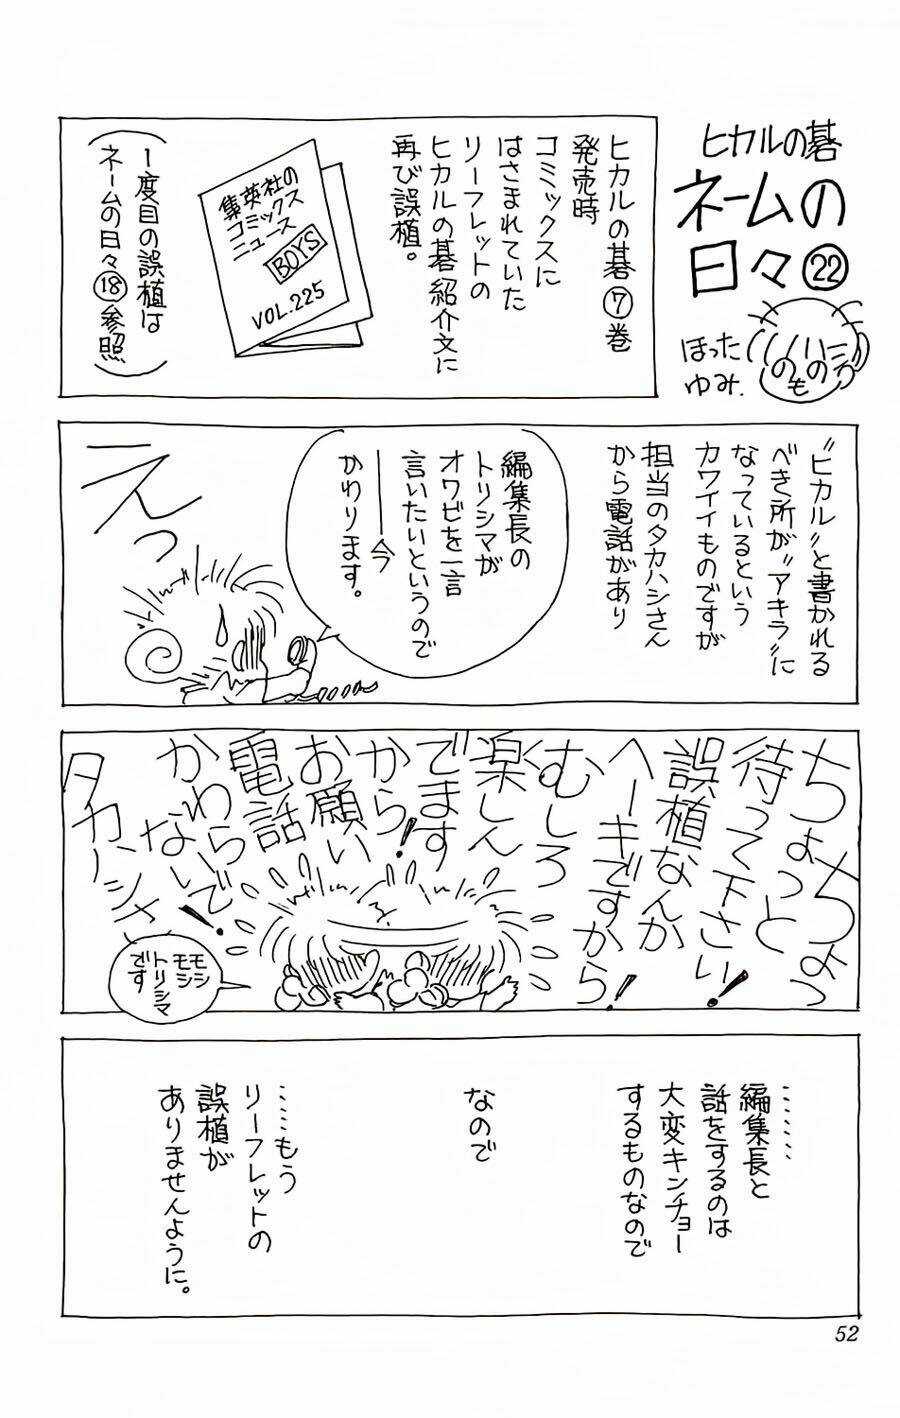 ヒカルの碁
ネームの
日々㉒
ほった
ゆみ.
ヒカルの碁⑦巻
発売時
コミックスに
はさまれていた
リーフレットの
ヒカルの碁紹介文に
再び誤植。
集英社の
コミックス
ニュース
BOYS
VOL.225
(1度目の誤植は
ネームの日々⑱参照)
"ヒカル"と書かれる
べき所が"アキラ"に
なっているという
カワイイものですが
担当のタカハシさん
から電話があり
編集長の
トリシマが
オワビを一言
言いたいというので
――今
かわります。
えっ
ちょっとちょっと
待って下さい!
誤植なんか
ヘーキですから!
むしろ
楽しん
でます
から!
お願い
電話
かわらないで!
タカハシさ
モシ
モシ
トリシマ
です
……
編集長と
話をするのは
大変キンチョー
するものなので
なので
……もう
リーフレットの
誤植が
ありませんように。
52